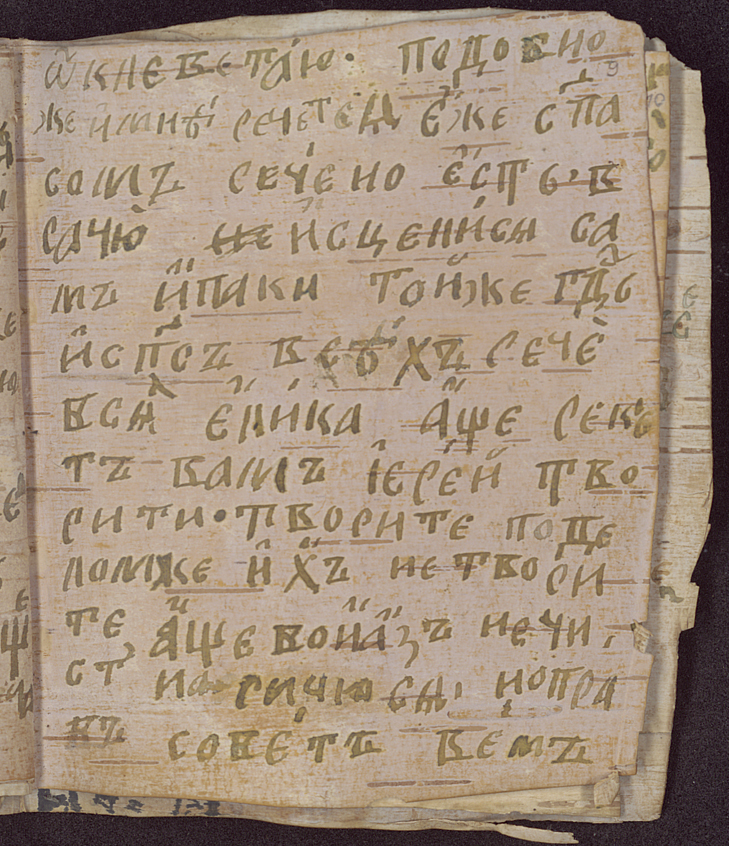 ѿ клеветаю· подобно
же и мнѣ речетед еже спа
сомъ речено есть· в
рачю исцелися са
мъ и паки тойже гдь
и спсъ всѣхъ рече
вся елика аще реку
тъ вамъ іерей тво
рити· творите по де
ломже ихъ не твори
те аще во и азъ нечи
стъ наричюся, но пра
въ советъ вемъ